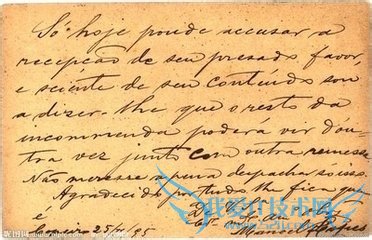 Só hoje poude accusar a
recepção de seu presado favor,
e sciente de seu contiúdo sou
a dizer-lhe que o resto da
incommenda poderá vir d'ou-
tra vez junto com outra remessa
Não meresse a pena despachar só isso.
Agradecido p. tudo lhe fica
e
25 95